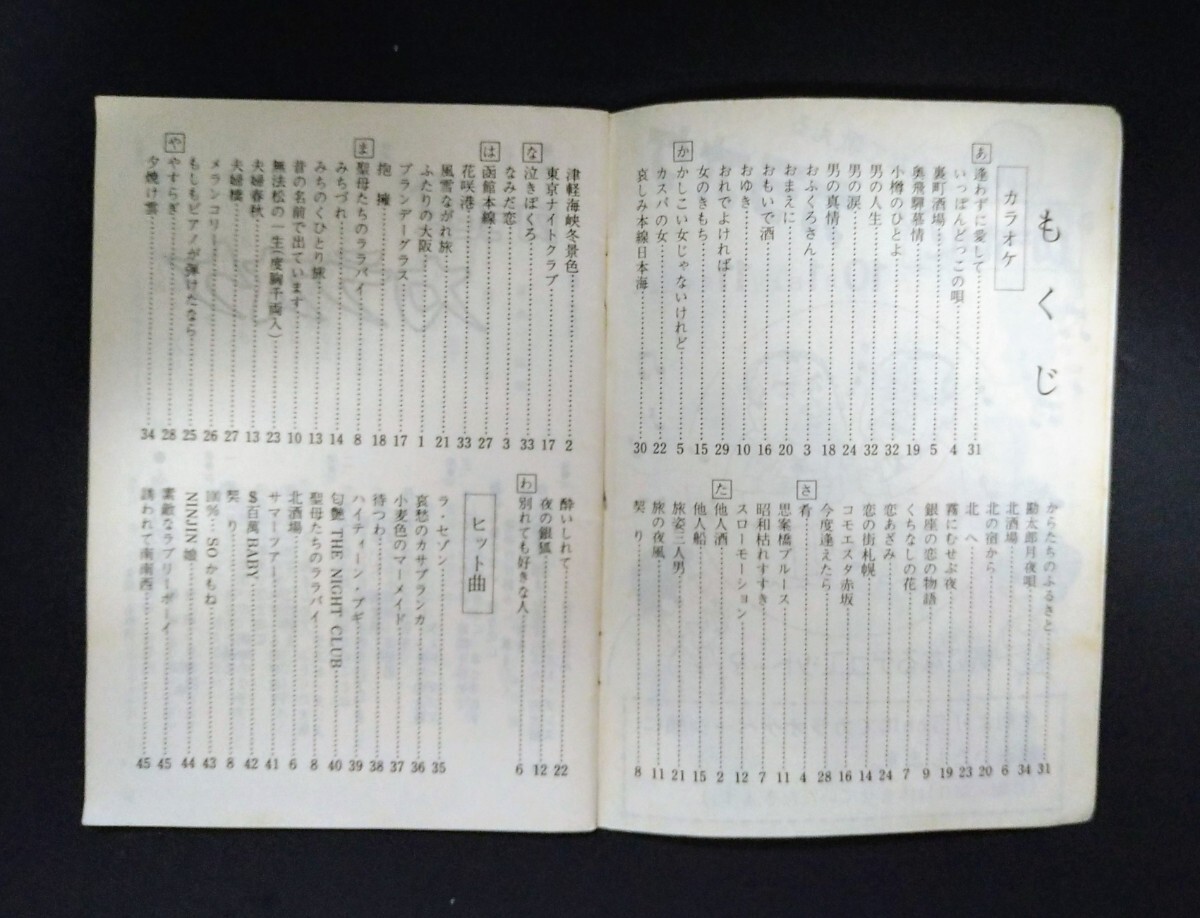 もくじ
カラオケ
あ
逢わずに愛して 31
いっぽんどっこの唄 4
裏町酒場 5
奥飛騨慕情 19
小樽のひとよ 32
男の人生 32
男の涙 24
男の真情 18
おふくろさん 3
おまえに 20
おもいで酒 16
おゆき 10
おれでよければ 29
女のきもち 15
か
かしこい女じゃないけれど 5
カスバの女 22
哀しみ本線日本海 30
からたちのふるさと 31
勘太郎月夜唄 34
北酒場 6
北の宿から 20
北へ 23
霧にむせぶ夜 19
銀座の恋の物語 9
くちなしの花 7
恋あざみ 24
恋の街札幌 14
コモエスタ赤坂 16
今度逢えたら 28
さ
肴 4
思案橋ブルース 11
昭和枯れすすき 7
スローモーション 12
た
他人酒 2
他人船 15
旅姿三人男 21
旅の夜風 11
契り 8
津軽海峡冬景色 2
東京ナイトクラブ 17
な
泣きぼくろ 33
なみだ恋 3
は
函館本線 27
花咲港 33
風雪ながれ旅 21
ふたりの大阪 1
ブランデーグラス 17
抱擁 18
ま
聖母たちのララバイ 8
みちづれ 14
みちのくひとり旅 13
昔の名前で出ています 10
無法松の一生(度胸千両入) 23
夫婦春秋 13
夫婦橋 27
メランコリー 26
もしもピアノが弾けたなら 25
や
やすらぎ 28
夕焼け雲 34
酔いしれて 22
夜の銀狐 12
わ
別れても好きな人 6
ヒット曲
ラ・セゾン 35
哀愁のカサブランカ 36
小麦色のマーメイド 37
待つわ 38
ハイティーン・ブギ 39
匂艶 THE NIGHT CLUB 40
聖母たちのララバイ 8
北酒場 6
サマーツアー 41
＄百萬 BABY 42
契り 8
100%…SOかもね 43
NINJIN 娘 44
素敵なラブリーボーイ 45
誘われて南南西 45